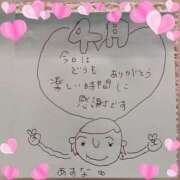 4月
今日は
どうも ありがとう
楽しい時間に
感謝です
あすなゆ